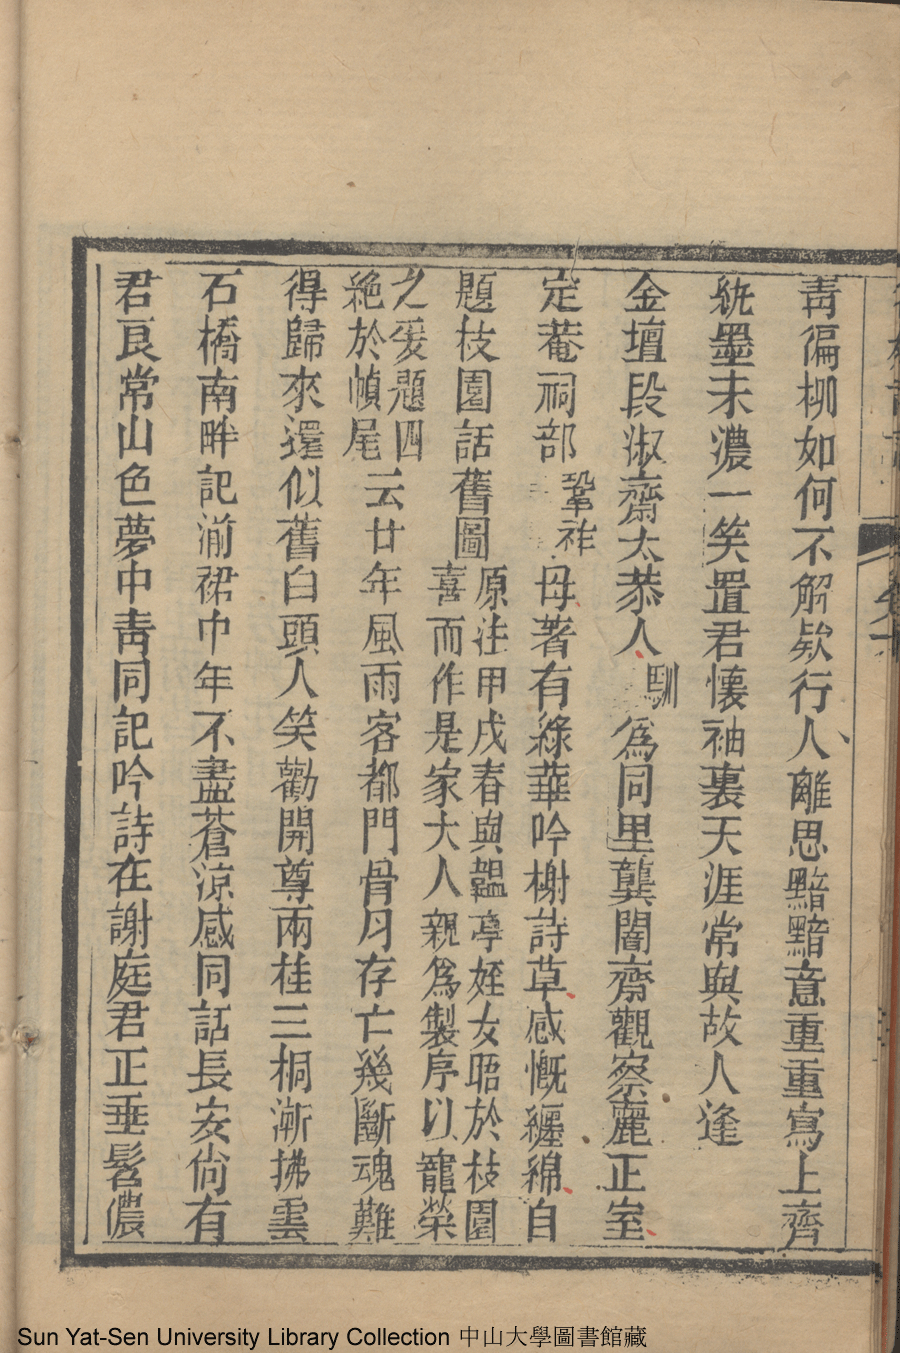 青徧柳如何不解欵行人離思黯黯意重重寫上齊
紈墨未濃一笑置君懷袖裏天涯常與故人逢
金壇段淑齋太恭人馴爲同里龔闇齋觀察麗正室
定菴祠部鞏祚母著有綠華吟榭詩草感慨纏綿自
題枝園話舊圖原注甲戌春與韞亭姪女晤於枝園
喜而作是家大人親爲製序以寵榮
之爰題四
絶於幀尾云廿年風雨客都門骨月存亡幾斷魂難
得歸來還似舊白頭人笑勸開尊兩桂三桐漸拂雲
石橋南畔記湔裙巾年不盡蒼涼感同話長安尙有
君良常山色夢中靑同記吟詩在謝庭君正垂髫儂
Sun Yat-Sen University Library Collection 中山大學圖書館藏